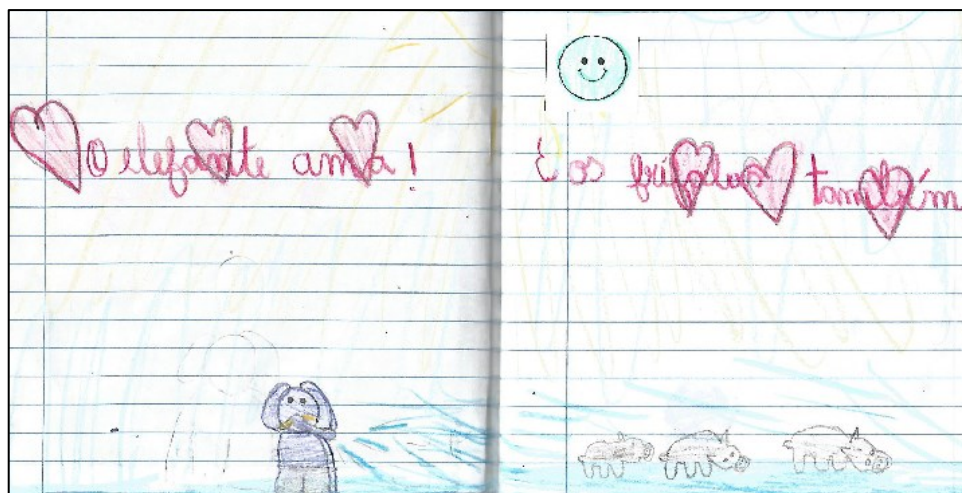 O elefante ama!
E os búfalos também